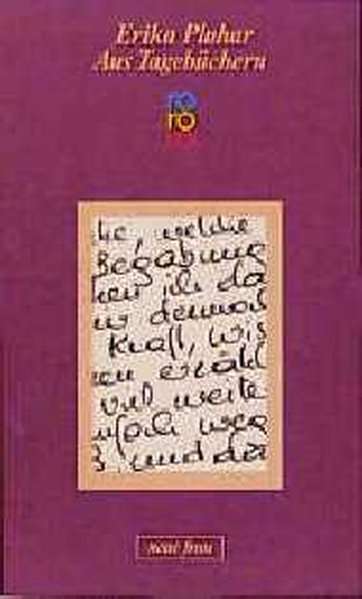 Erika Pluhar
Aus Tagebüchern
ro
ro
ro
he, welche
Begabung
ich da
dennoch
Kraft, wis
en erzähl
und weite
nfach weg
und da
neue frau